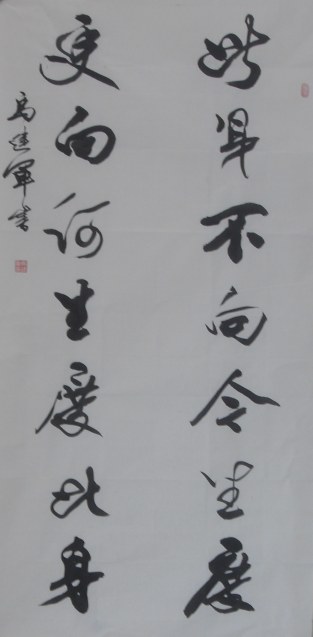 此身不向今生度
更向何生度此身
高建军书